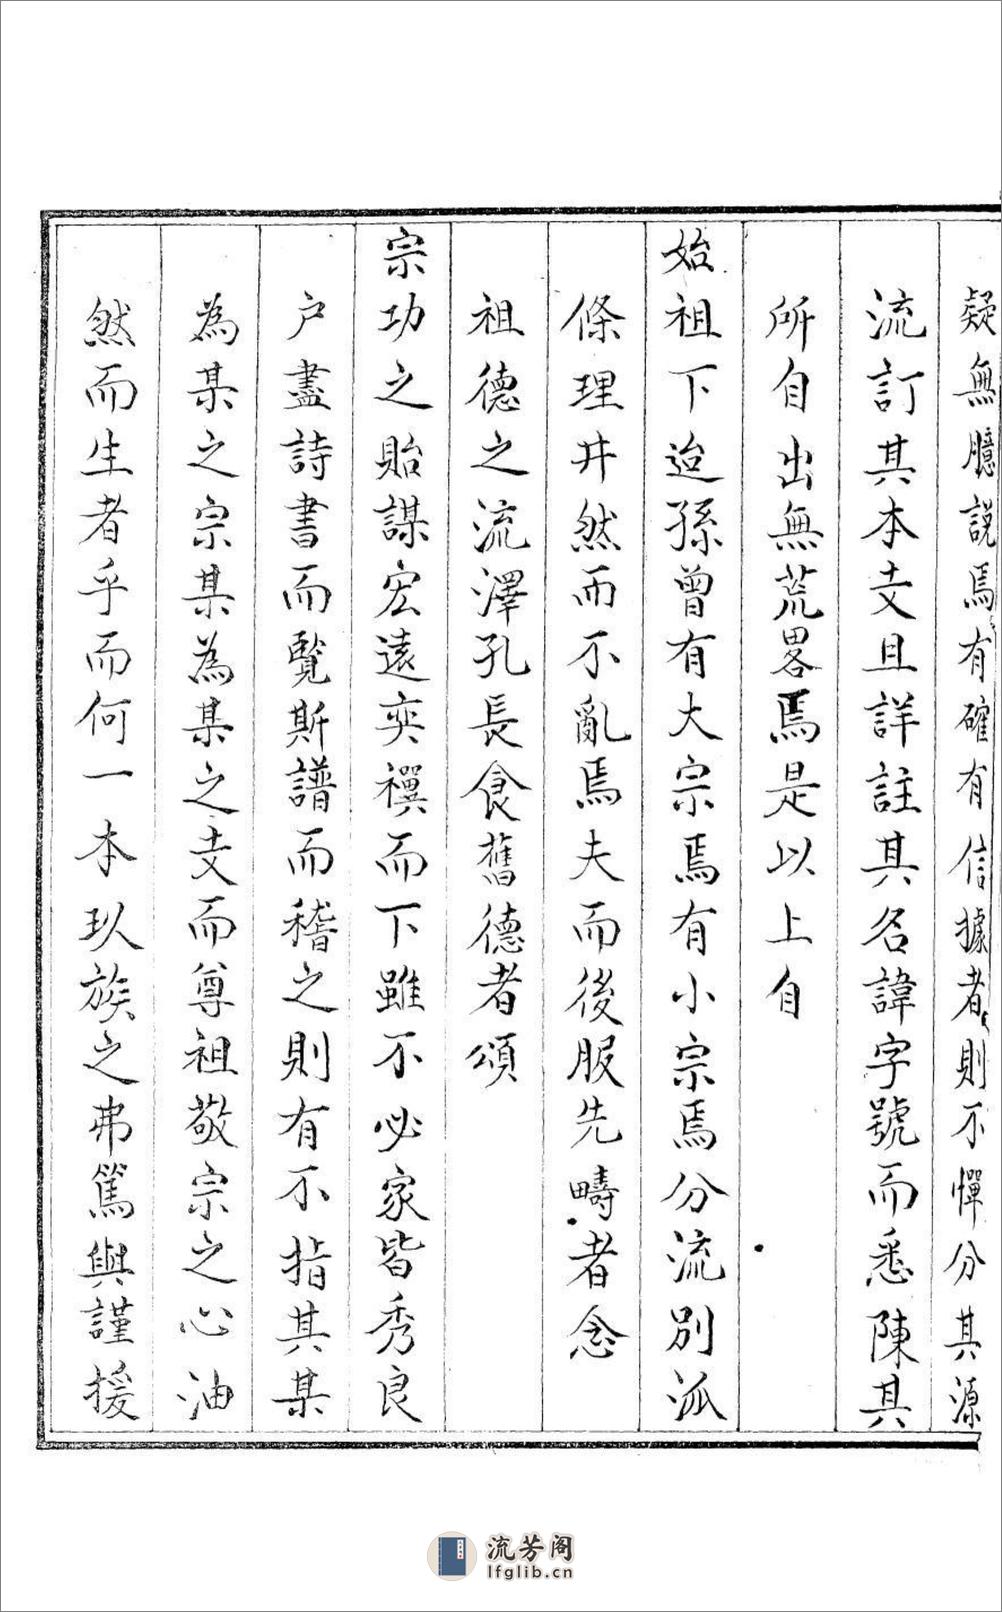 疑無臆説焉有確有信據者則不憚分其源
流訂其本支且詳註其名諱字號而悉陳其
所自出無荒畧焉是以上自
始祖下迨孫曾有大宗焉有小宗焉分流別派
條理井然而不亂焉夫而後服先疇者念
祖德之流澤孔長食舊德者頌
宗功之貽謀宏遠奕禩而下雖不必家皆秀良
户盡詩書而覽斯譜而稽之則有不指其某
為某之宗某為某之支而尊祖敬宗之心油
然而生者乎而何一本玖族之弗篤與謹援
流芳阁
lfglib.cn